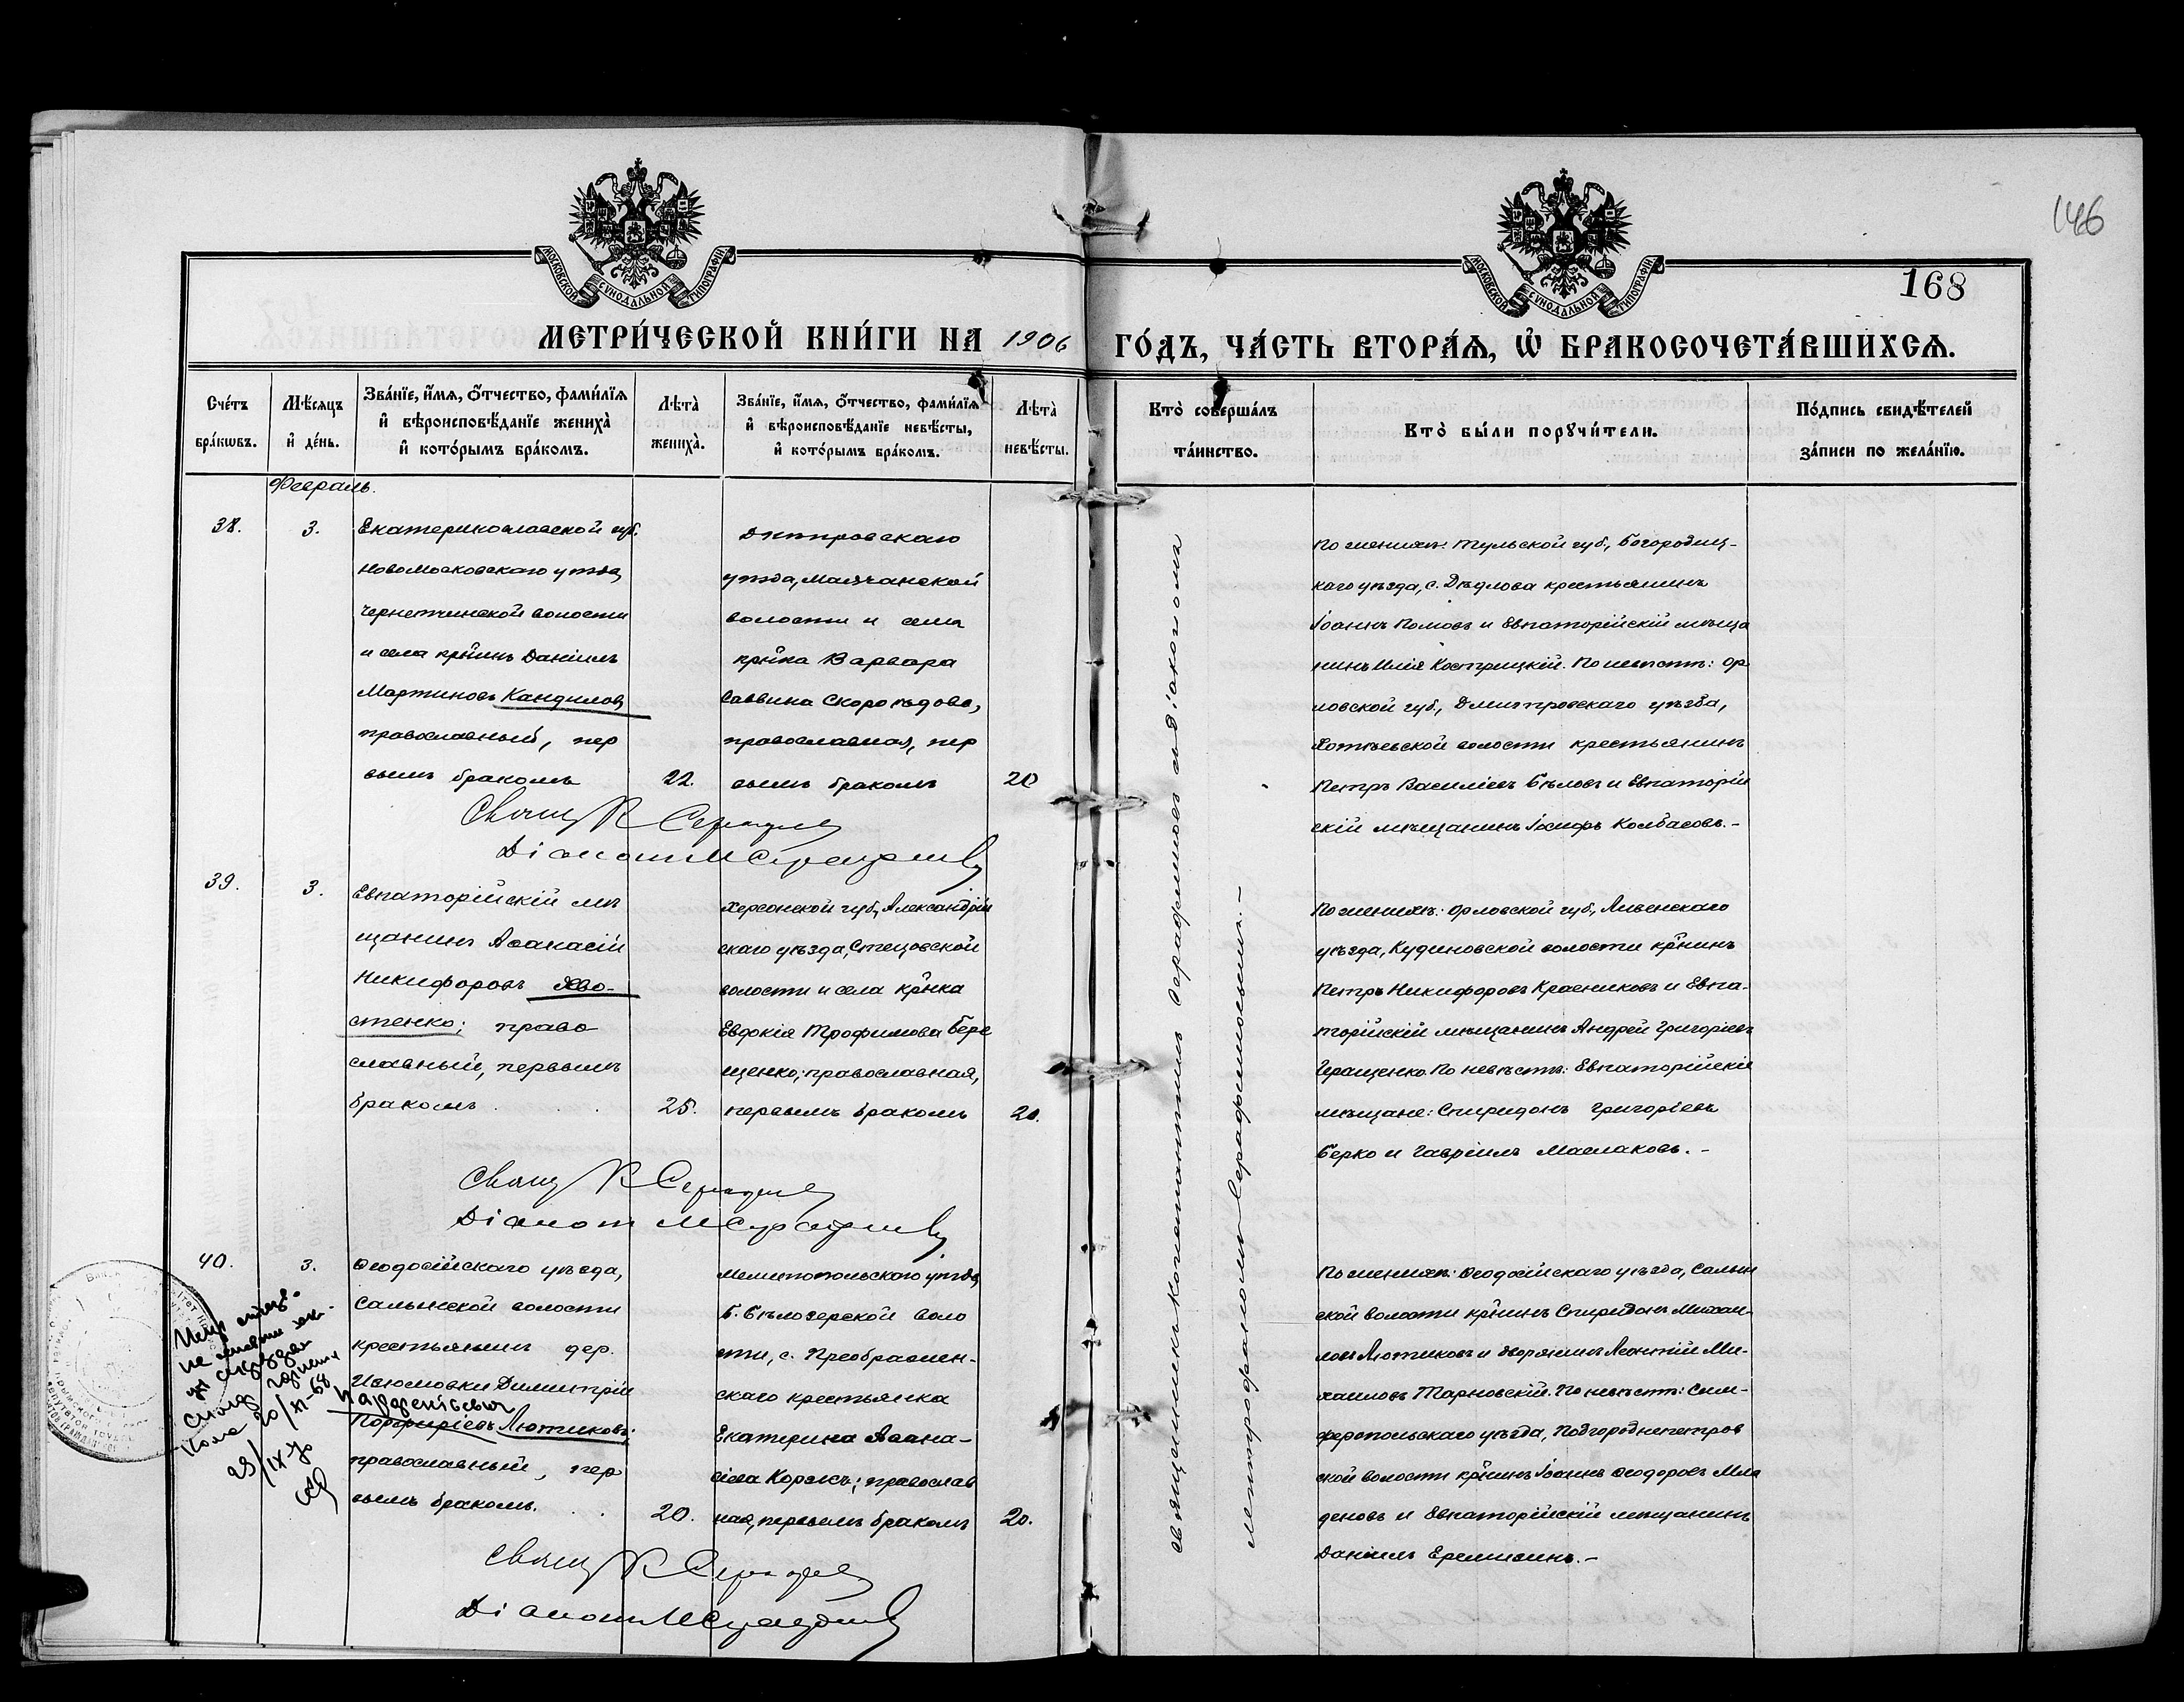 146
168
МОСКОВСКОЙ СѴНОДАЛЬНОЙ ТИПОГРАФІИ
МОСКОВСКОЙ СѴНОДАЛЬНОЙ ТИПОГРАФІИ
МЕТРИ́ЧЕСКОЙ КНИ́ГИ НА 1906 ГО́ДЪ, ЧА́СТЬ ВТОРА́Я, Ѡ҆ БРАКОСОЧЕТА́ВШИХСЯ.
Сче́тъ бра́кѡвъ.
Мѣ́сяцъ и҆ де́нь.
Зва́нїе, и҆́мя, ѻ҆́тчество, фами́лїя
и҆ вѣроисповѣ́данїе жениха̀
и҆ кото́рымъ бра́комъ.
Лѣта̀ жениха̀.
Зва́нїе, и҆́мя, ѻ҆́тчество, фами́лїя
и҆ вѣроисповѣ́данїе невѣ́сты,
и҆ кото́рымъ бра́комъ.
Лѣта̀ невѣ́сты.
Кто̀ соверша́лъ
та́инство.
Кто̀ бы́ли порꙋчи́тели.
По́дпись свидѣ́телей
за́писи по жела́нїю.
Февраль.
38.
3.
Екатеринославской губ.
Новомосковскаго уѣзда
Чернетчинской волости
и села кр-нинъ Даніилъ
Мартиновъ Кандиловъ
православный, пер
вымъ бракомъ
22.
Днѣпровскаго
уѣзда, Маячанской
волости и села
кр-нка Варвара
Саввина Скороѣдова,
православная, пер
вымъ бракомъ
20
По женихѣ: Тульской губ., Богородиц-
каго уѣзда, с. Дѣдлова крестьянинъ
Іоаннъ Поповъ и Евпаторійскій мѣща
нинъ Илія Кострицкій. По невѣстѣ: Ор
ловской губ., Дмитровскаго уѣзда,
Хотьевской волости крестьянинъ
Петръ Василіевъ Бѣловъ и Евпаторій
скій мѣщанинъ Іосифъ Колбасовъ.-
Свящ К Серафимов
Діаконъ М Серафимовъ
39.
3.
Евпаторійскій мѣ
щанинъ Аѳанасій
Никифоровъ Хво-
стенко; право
славный, первымъ
бракомъ . .
25.
Херсонской губ., Александрій
скаго уѣзда, Стецовской
волости и села кр-нка
Евдокія Трофимова Бере
щенко; православная,
первымъ бракомъ
20.
По женихѣ: Орловской губ., Ливенскаго
уѣзда, Кудиновской волости кр-нинъ
Петръ Никифоровъ Красниковъ и Евпа-
торійскій мѣщанинъ Андрей Григоріевъ
Геращенко. По невѣстѣ: Евпаторійскіе
мѣщане: Спиридонъ Григоріевъ
Берко и Гавріилъ Маслаковъ.-
Свящ К Серафимов
Діаконъ М Серафимовъ
40.
3.
Ѳеодосійскаго уѣзда,
Салынской волости
крестьянинъ дер.
Изюмовки Димитрій
Парфеніевич
Порфиріевъ Лютиковъ;
православный, пер
вымъ бракомъ. . .
20.
Мелитопольскаго уѣзда
Б. Бѣлозерской воло
сти, с. Преображен-
скаго крестьянка
Екатерина Аѳана-
сіева Коржъ; православ
ная, первымъ бракомъ
20.
По женихѣ: Ѳеодосійскаго уѣзда, Салын
ской волости кр-нинъ Спиридонъ Михаи-
ловъ Лютиковъ и дворянинъ Леонтій Ми-
хаиловъ Тарновскій. По невѣстѣ: Сим-
феропольскаго уѣзда, Подгороднепетров
ской волости кр-нинъ Іоаннъ Ѳеодоровъ Мла
деновъ и Евпаторійскій мѣщанинъ
Даніилъ Еремизинъ.-
Свящ К Серафимов
Діаконъ М Серафимовъ
священникъ Константинъ Серафимовъ съ діакономъ
Митрофаномъ Серафимовымъ.-